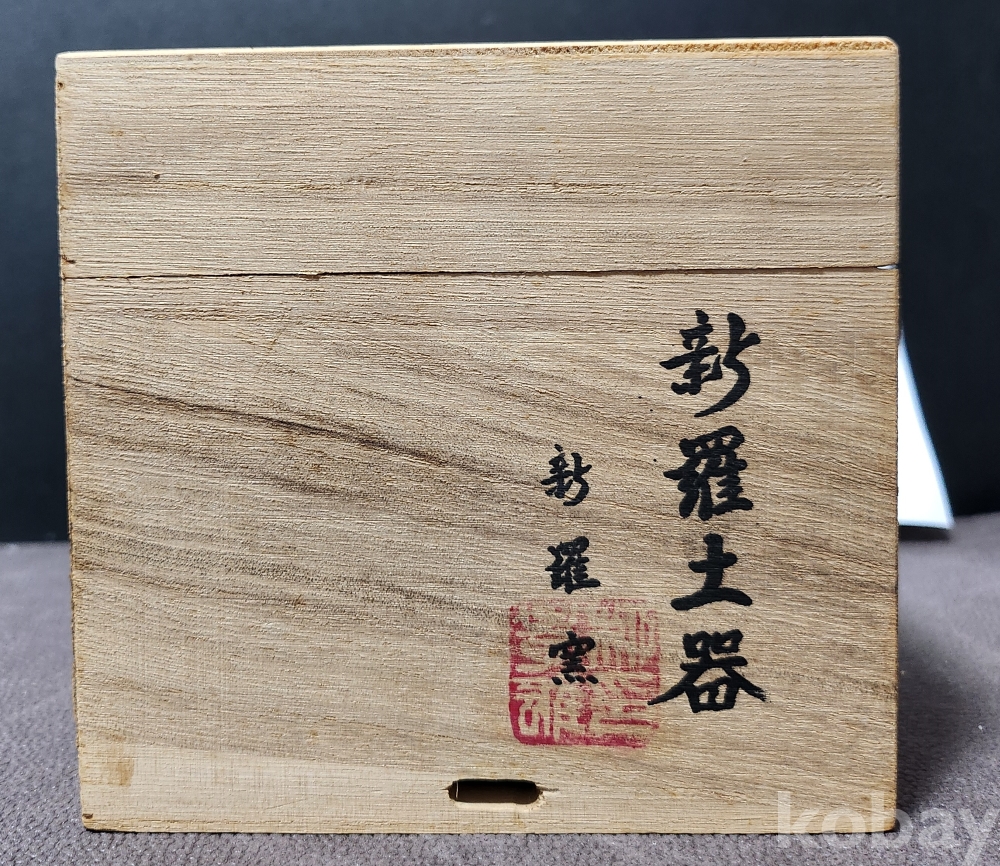 新羅土器
新羅窯
kobay